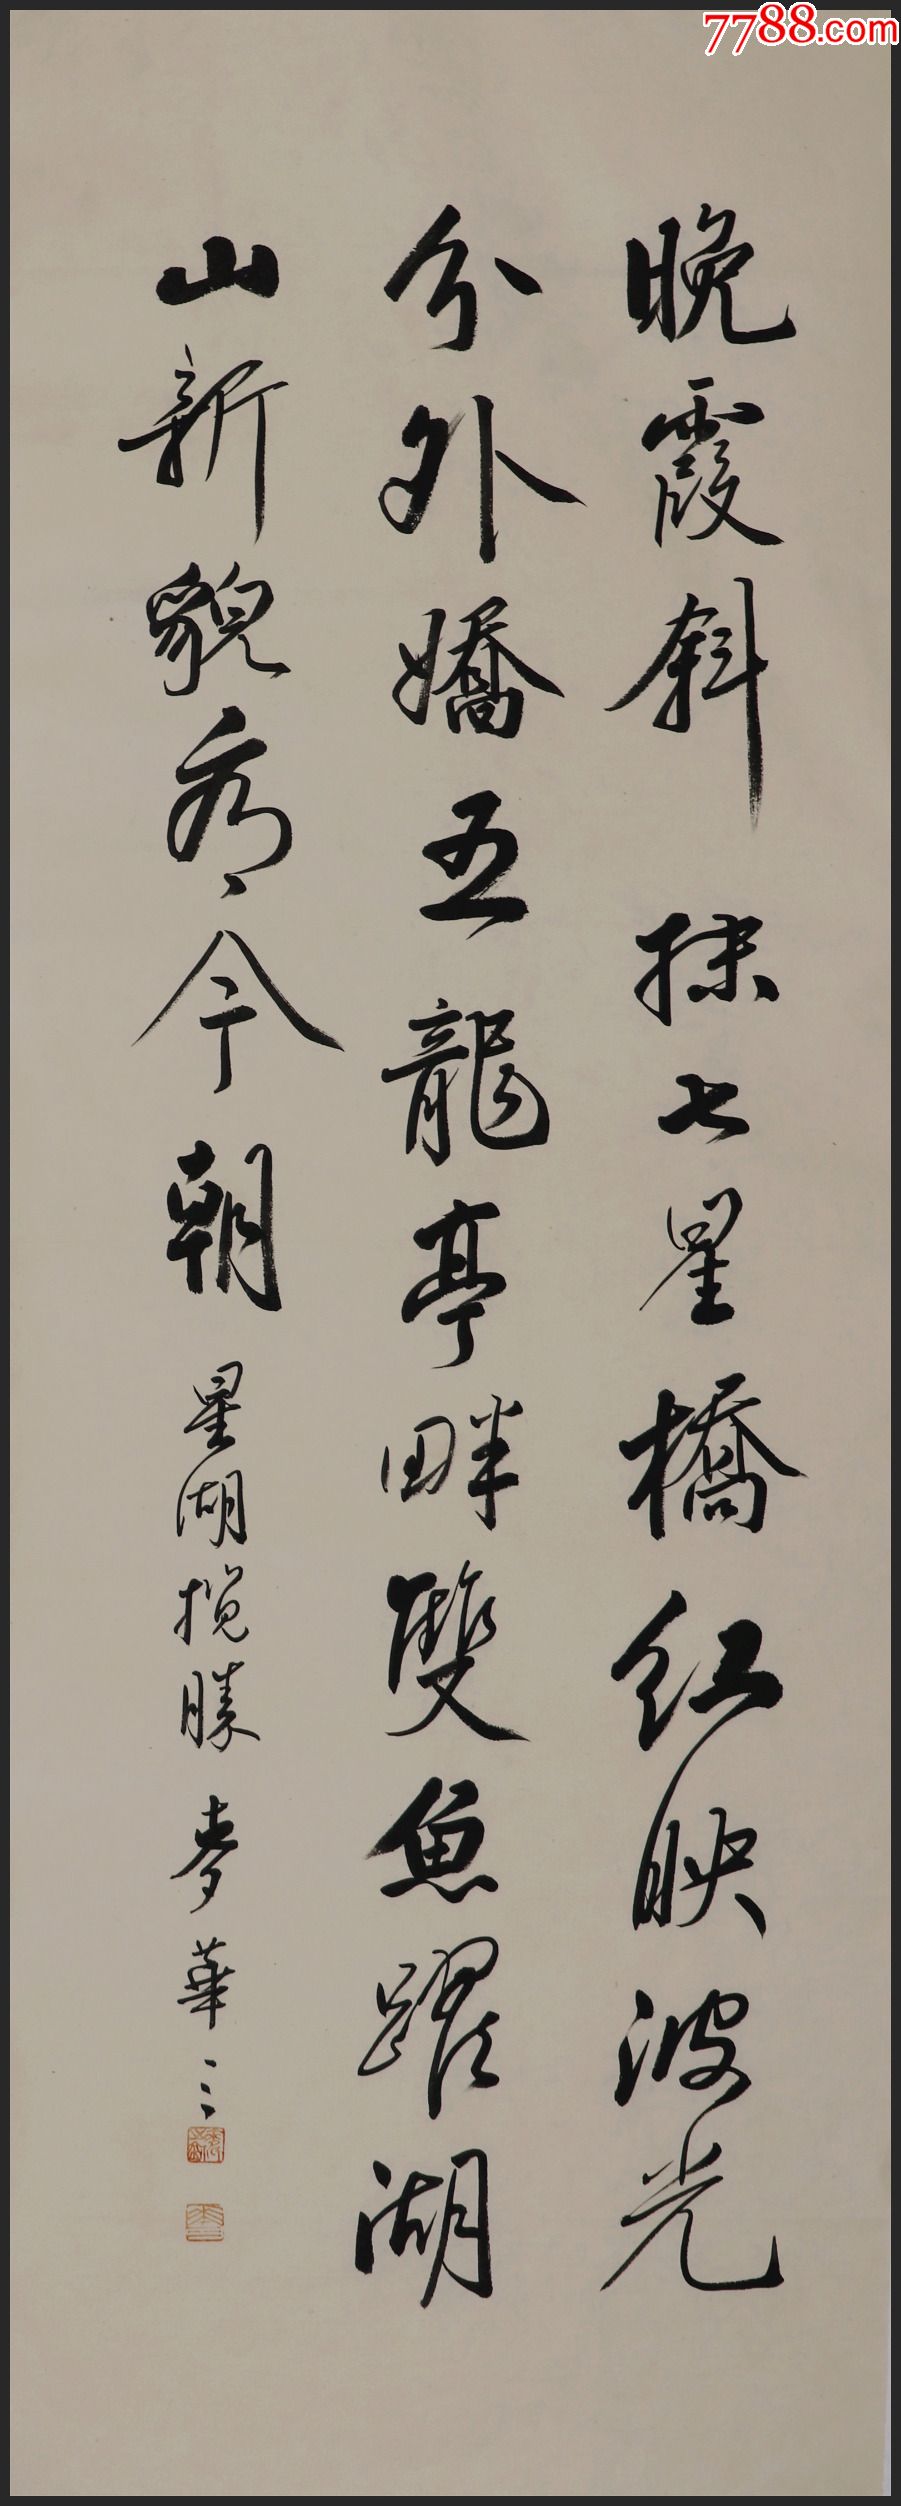 7788.com
晚霞斜抹七星橋红映波光
分外嬌五龍亭畔雙魚躍湖
山新貌看今朝
星湖揽勝 麥華三